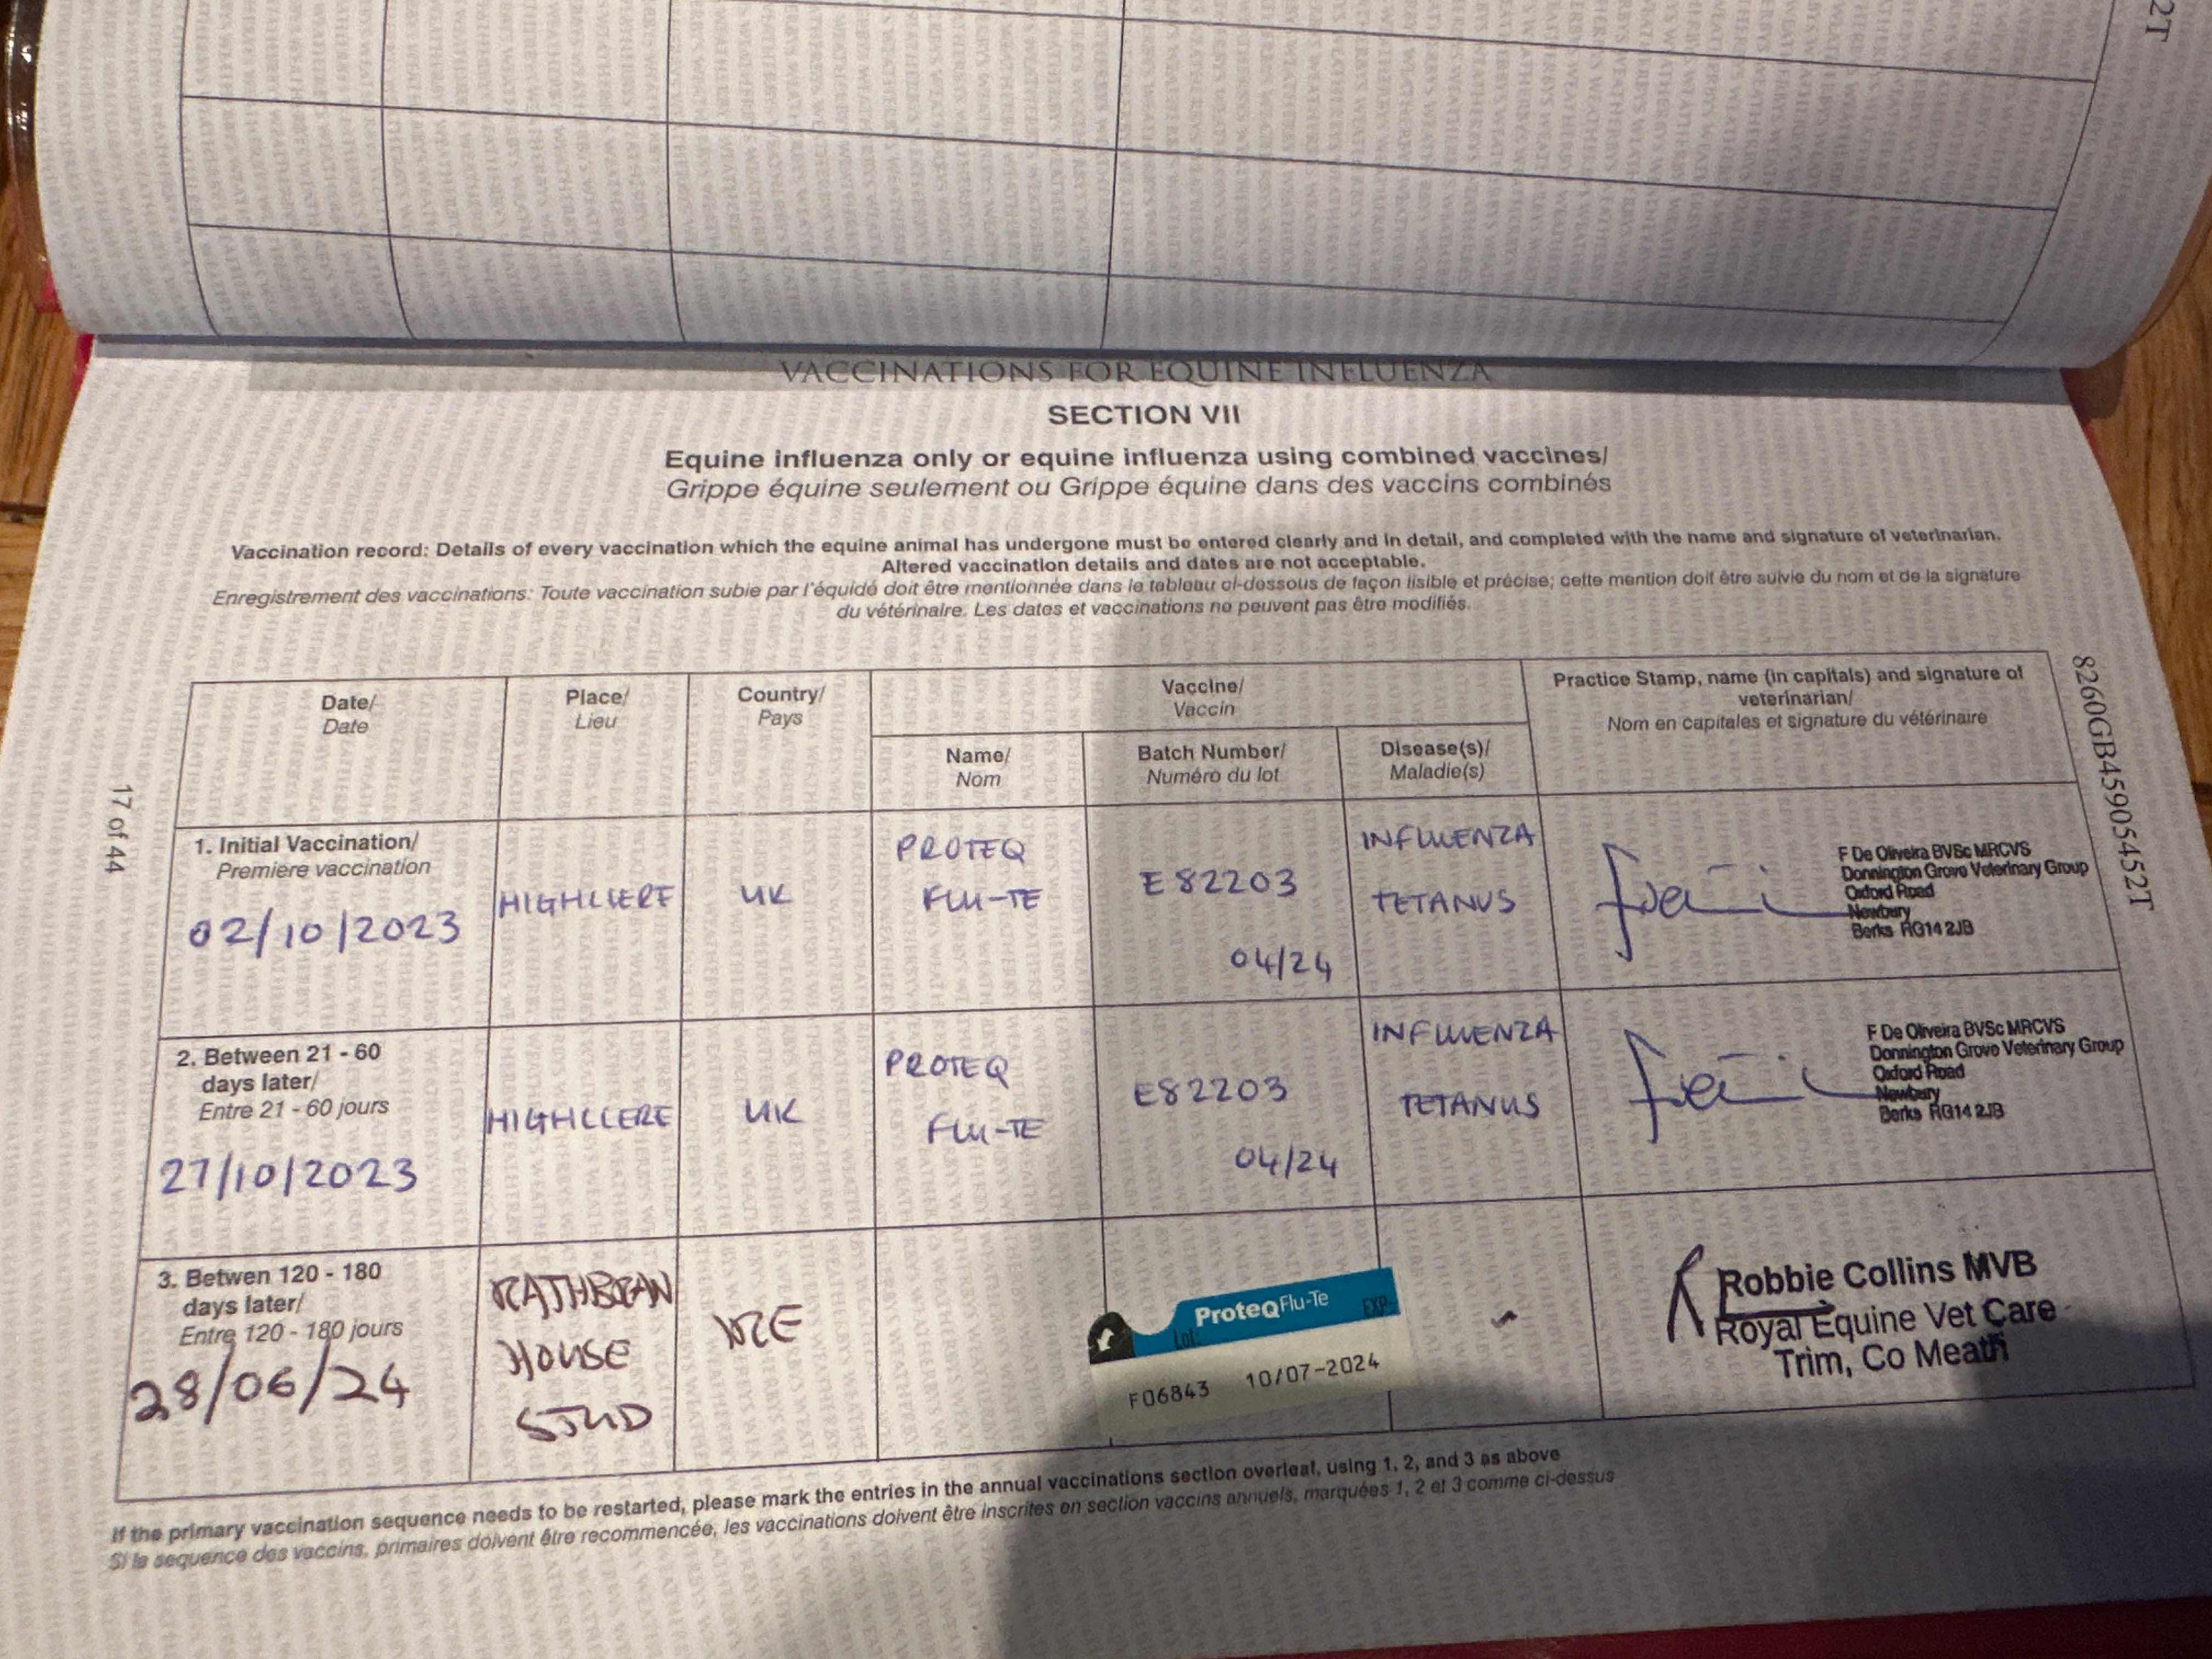 2T
VACCINATIONS FOR EQUINE INFLUENZA
SECTION VII
Equine influenza only or equine influenza using combined vaccines/
Grippe équine seulement ou Grippe équine dans des vaccins combinés
Vaccination record: Details of every vaccination which the equine animal has undergone must be entered clearly and in detail, and completed with the name and signature of veterinarian.
Altered vaccination details and dates are not acceptable.
Enregistrement des vaccinations: Toute vaccination subie par l'équidé doit être mentionnée dans le tableau ci-dessous de façon lisible et précise; cette mention doit être suivie du nom et de la signature
du vétérinaire. Les dates et vaccinations ne peuvent pas être modifiés.
8260GB45905452T
17 of 44
Date/
Date
Place/
Lieu
Country/
Pays
Vaccine/
Vaccin
Practice Stamp, name (in capitals) and signature of
veterinarian/
Nom en capitales et signature du vétérinaire
Name/
Nom
Batch Number/
Numéro du lot
Disease(s)/
Maladie(s)
1. Initial Vaccination/
Premiere vaccination
02/10/2023
HIGHCLERE
UK
PROTEQ
FLU-TE
E82203
04/24
INFLUENZA
TETANUS
F De Oliveira BVSc MRCVS
Donnington Grove Veterinary Group
Oxford Road
Newbury
Berks RG14 2JB
2. Between 21 - 60
days later/
Entre 21 - 60 jours
27/10/2023
HIGHCLERE
UK
PROTEQ
FLU-TE
E82203
04/24
INFLUENZA
TETANUS
F De Oliveira BVSc MRCVS
Donnington Grove Veterinary Group
Oxford Road
Newbury
Berks RG14 2JB
3. Betwen 120 - 180
days later/
Entre 120 - 180 jours
28/06/24
RATHBEAN
HOUSE
STUD
IRE
ProteqFlu-Te
Lot:
EXP
F06843 10/07-2024
Robbie Collins MVB
Royal Equine Vet Care
Trim, Co Meath
If the primary vaccination sequence needs to be restarted, please mark the entries in the annual vaccinations section overleaf, using 1, 2, and 3 as above
Si la sequence des vaccins, primaires doivent être recommencée, les vaccinations doivent être inscrites en section vaccins annuels, marquées 1, 2 et 3 comme ci-dessus